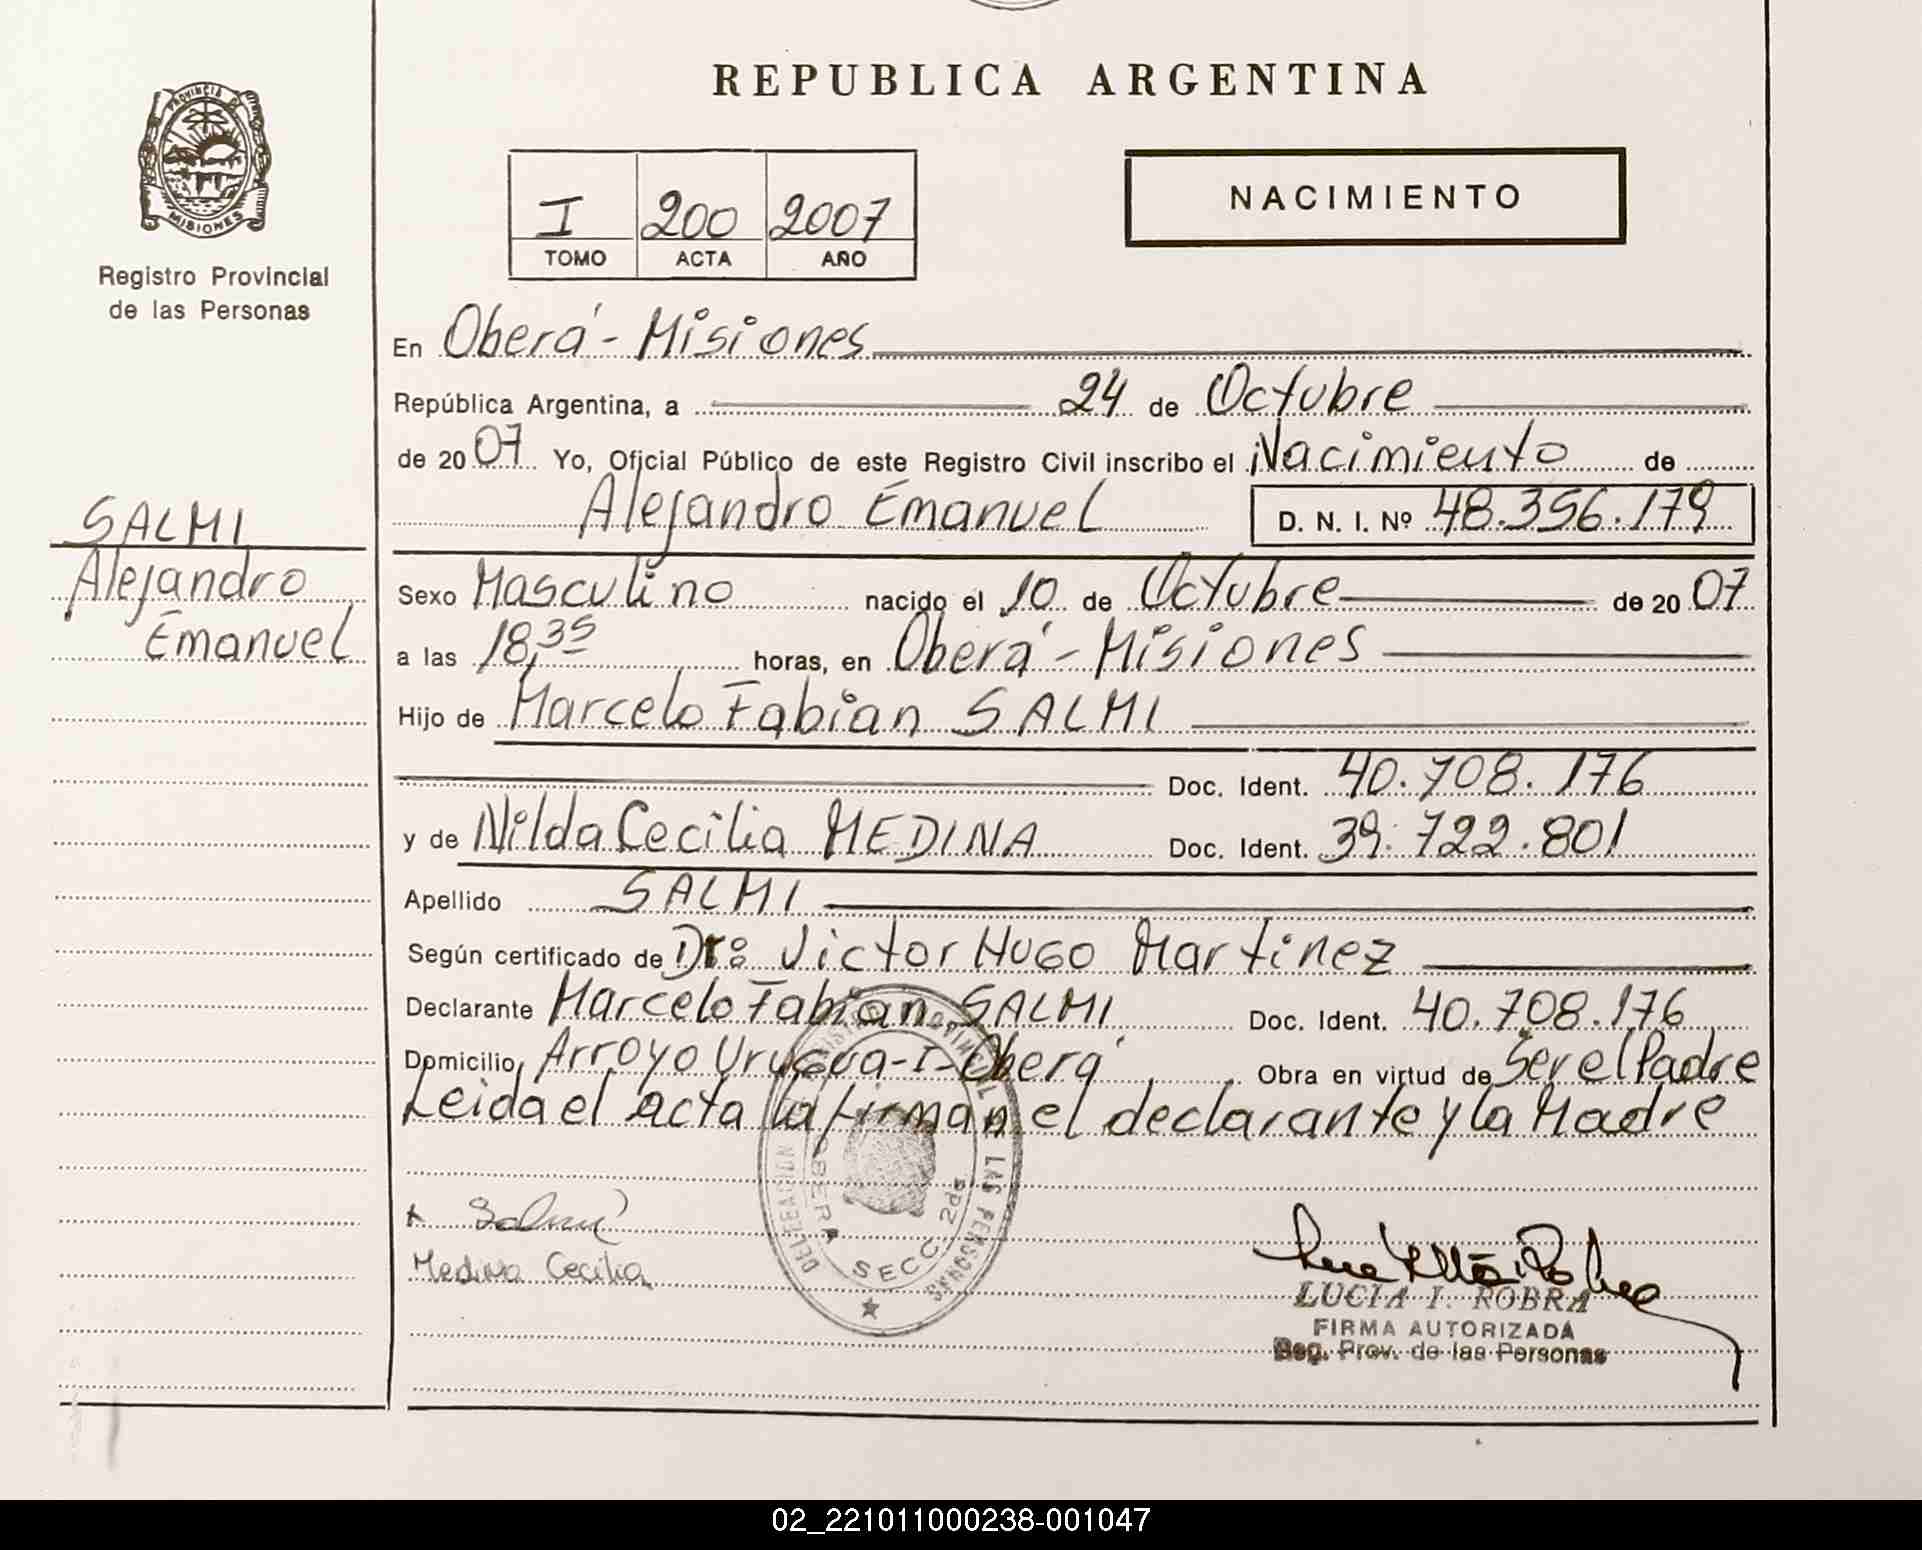 REPUBLICA ARGENTINA
PROVINCIA DE
MISIONES
Registro Provincial
de las Personas
I 200 2007
TOMO ACTA AÑO
NACIMIENTO
En Oberá - Misiones
República Argentina, a 24 de Octubre
de 2007 Yo, Oficial Público de este Registro Civil inscribo el Nacimiento de
Alejandro Emanuel D. N. I. Nº 48.356.179
SALMI
Alejandro
Emanuel
Sexo Masculino nacido el 10 de Octubre de 2007
a las 18,35 horas, en Oberá - Misiones
Hijo de Marcelo Fabian SALMI
Doc. Ident. 40.708.176
y de Nilda Cecilia MEDINA Doc. Ident. 39.722.801
Apellido SALMI
Según certificado de Dr: Victor Hugo Martinez
Declarante Marcelo Fabian SALMI Doc. Ident. 40.708.176
Domicilio Arroyo Urugua-I-Oberá Obra en virtud de Ser el Padre
Leida el acta la firman el declarante y la Madre
Salmi
Medina Cecilia
DELEGACION PROVINCIAL LAS PERSONAS
OBERA SECC 2da
LUCIA I. ROBRA
FIRMA AUTORIZADA
Reg. Prov. de las Personas
02_221011000238-001047